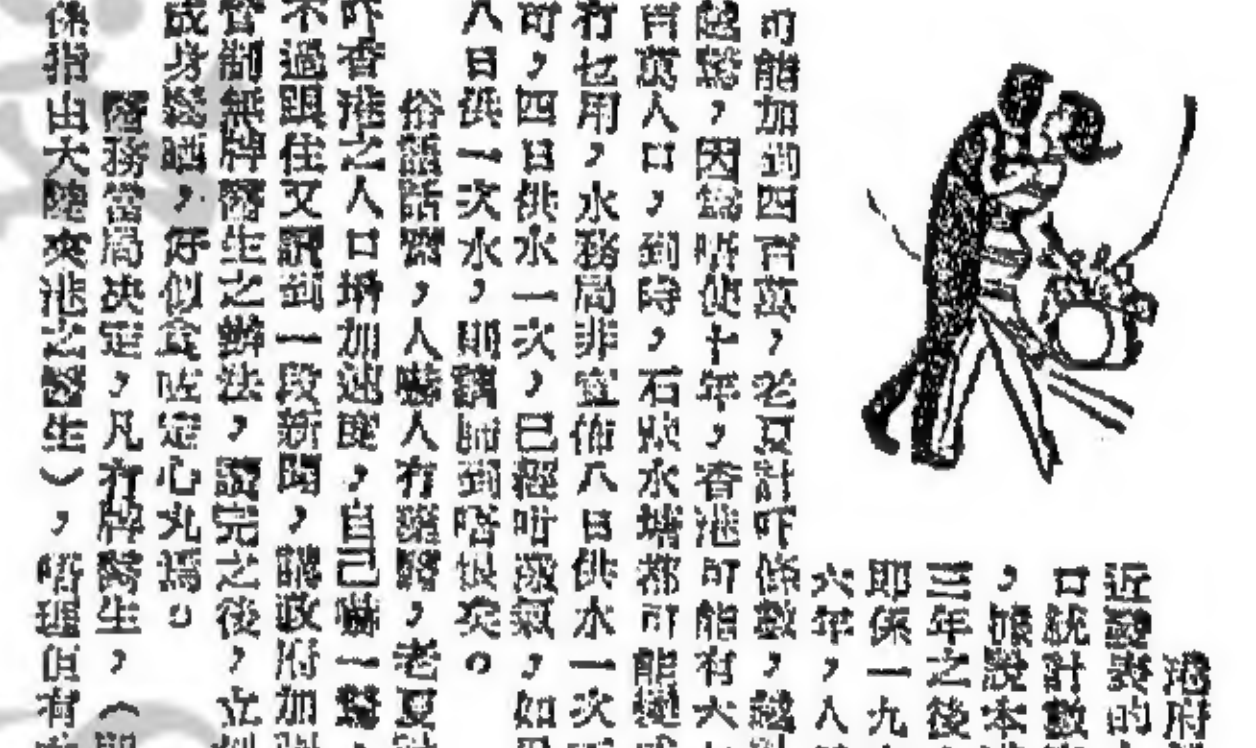 港府
近發表的
口統計數
，據說本港
三年之後
即係一九
六年，人
可能加到四百萬，老夏計吓條數，越計
越驚，因為唔使十年，香港可能有六
百萬人口，到時，石壁水塘都可能變成
冇乜用，水務局非宣佈八日供水一次不
可，四日供水一次，已經咁激氣，如果
八日供一次水，則講師到唔恨矣。
俗語話齋，人嚇人有藥醫，老夏計
吓香港之人口增加速度，自己嚇一驚，
不過跟住又讀到一段新聞，謂政府加強
管制無牌醫生之辦法，讀完之後，立刻
成身鬆晒，好似食咗定心丸焉。
醫務當局決定，凡有牌醫生，（即
係指由大陸來港之醫生），唔理佢有